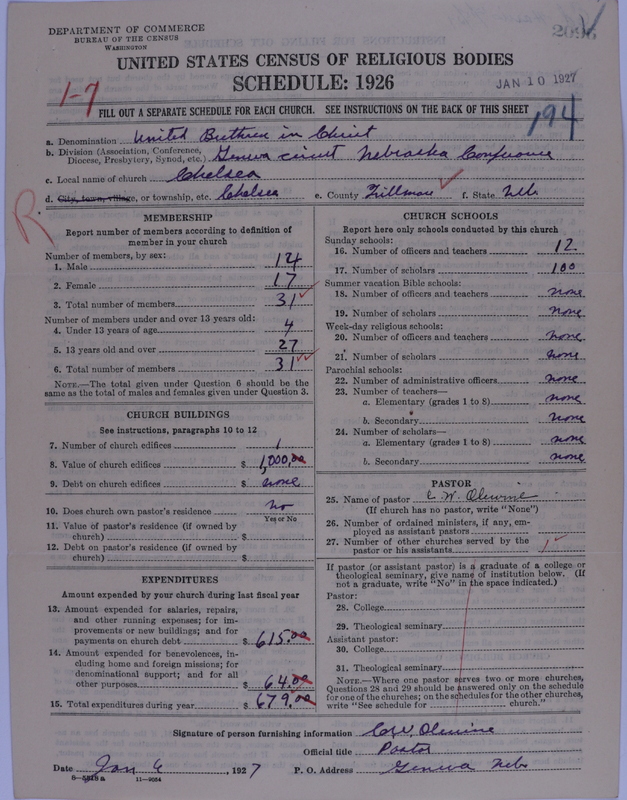 DEPARTMENT OF COMMERCE
BUREAU OF THE CENSUS
WASHINGTON
UNITED STATES CENSUS OF RELIGIOUS BODIES
SCHEDULE: 1926
JAN 10 1927
1-7
FILL OUT A SEPARATE SCHEDULE FOR EACH CHURCH. SEE INSTRUCTIONS ON THE BACK OF THIS SHEET
194
a. Denomination United Brethren in Christ
b. Division (Association, Conference, Diocese, Presbytery, Synod, etc.) Geneva circuit Nebraska Conference
c. Local name of church Chelsea
d. City, town, village, or township, etc. Chelsea e. County Fillmore f. State Neb.
R
MEMBERSHIP
Report number of members according to definition of
member in your church
Number of members, by sex:
1. Male 14
2. Female 17
3. Total number of members 31
Number of members under and over 13 years old:
4. Under 13 years of age 4
5. 13 years old and over 27
6. Total number of members 31
NOTE.—The total given under Question 6 should be
same as the total of males and females given under Question 3.
CHURCH BUILDINGS
See instructions, paragraphs 10 to 12
7. Number of church edifices 1
8. Value of church edifices $ 1,000.00
9. Debt on church edifices $ none
10. Does church own pastor's residence no
Yes or No
11. Value of pastor's residence (if owned by
church) $
12. Debt on pastor's residence (if owned by
church) $
EXPENDITURES
Amount expended by your church during last fiscal year
13. Amount expended for salaries, repairs,
and other running expenses; for im-
provements or new buildings; and for
payments on church debt $ 615.00
14. Amount expended for benevolences, in-
cluding home and foreign missions; for
denominational support; and for all
other purposes $ 64.00
15. Total expenditures during year $ 679.00
CHURCH SCHOOLS
Report here only schools conducted by this church
Sunday schools:
16. Number of officers and teachers 12
17. Number of scholars 100
Summer vacation Bible schools:
18. Number of officers and teachers none
19. Number of scholars none
Week-day religious schools:
20. Number of officers and teachers none
21. Number of scholars none
Parochial schools:
22. Number of administrative officers none
23. Number of teachers—
a. Elementary (grades 1 to 8) none
b. Secondary none
24. Number of scholars—
a. Elementary (grades 1 to 8) none
b. Secondary none
PASTOR
25. Name of pastor C W. Olewine
(If church has no pastor, write "None")
26. Number of ordained ministers, if any, em-
ployed as assistant pastors
27. Number of other churches served by the
pastor or his assistants 1
If pastor (or assistant pastor) is a graduate of a college or
theological seminary, give name of institution below. (If
not a graduate, write "No" in the space indicated.)
Pastor:
28. College
29. Theological seminary
Assistant pastor:
30. College
31. Theological seminary
NOTE.—Where one pastor serves two or more churches,
Questions 28 and 29 should be answered only on the schedule
for one of the churches; on the schedules for the other churches,
write "See schedule for church."
Signature of person furnishing information C W Olewine
Official title Pastor
Date Jan 6, 1927 P. O. Address Geneva Nebr
11—9064